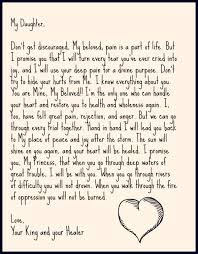 My Daughter,
Don't get discouraged, My beloved, pain is a part of life. But
I promise you that I will turn every tear you've ever cried into
joy, and I will use your deep pain for a divine purpose. Don't
try to hide your hurts from Me. I know everything about you.
You are Mine, My Beloved!! I'm the only one who can handle
your heart and restore you to health and wholeness again. I,
too, have felt great pain, rejection, and anger. But we can go
through every trial together. Hand in hand I will lead you back
to My place of peace and joy after the storm. The sun will
shine on you again, and your heart will be healed. I promise
you, My Princess, that when you go through deep waters of
great trouble, I will be with you. When you go through rivers
of difficulty you will not drown. When you walk through the fire
of oppression you will not be burned.
Love,
Your King and your Healer